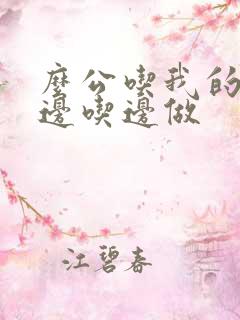 麼公喫我的
邊喫邊做
江碧春